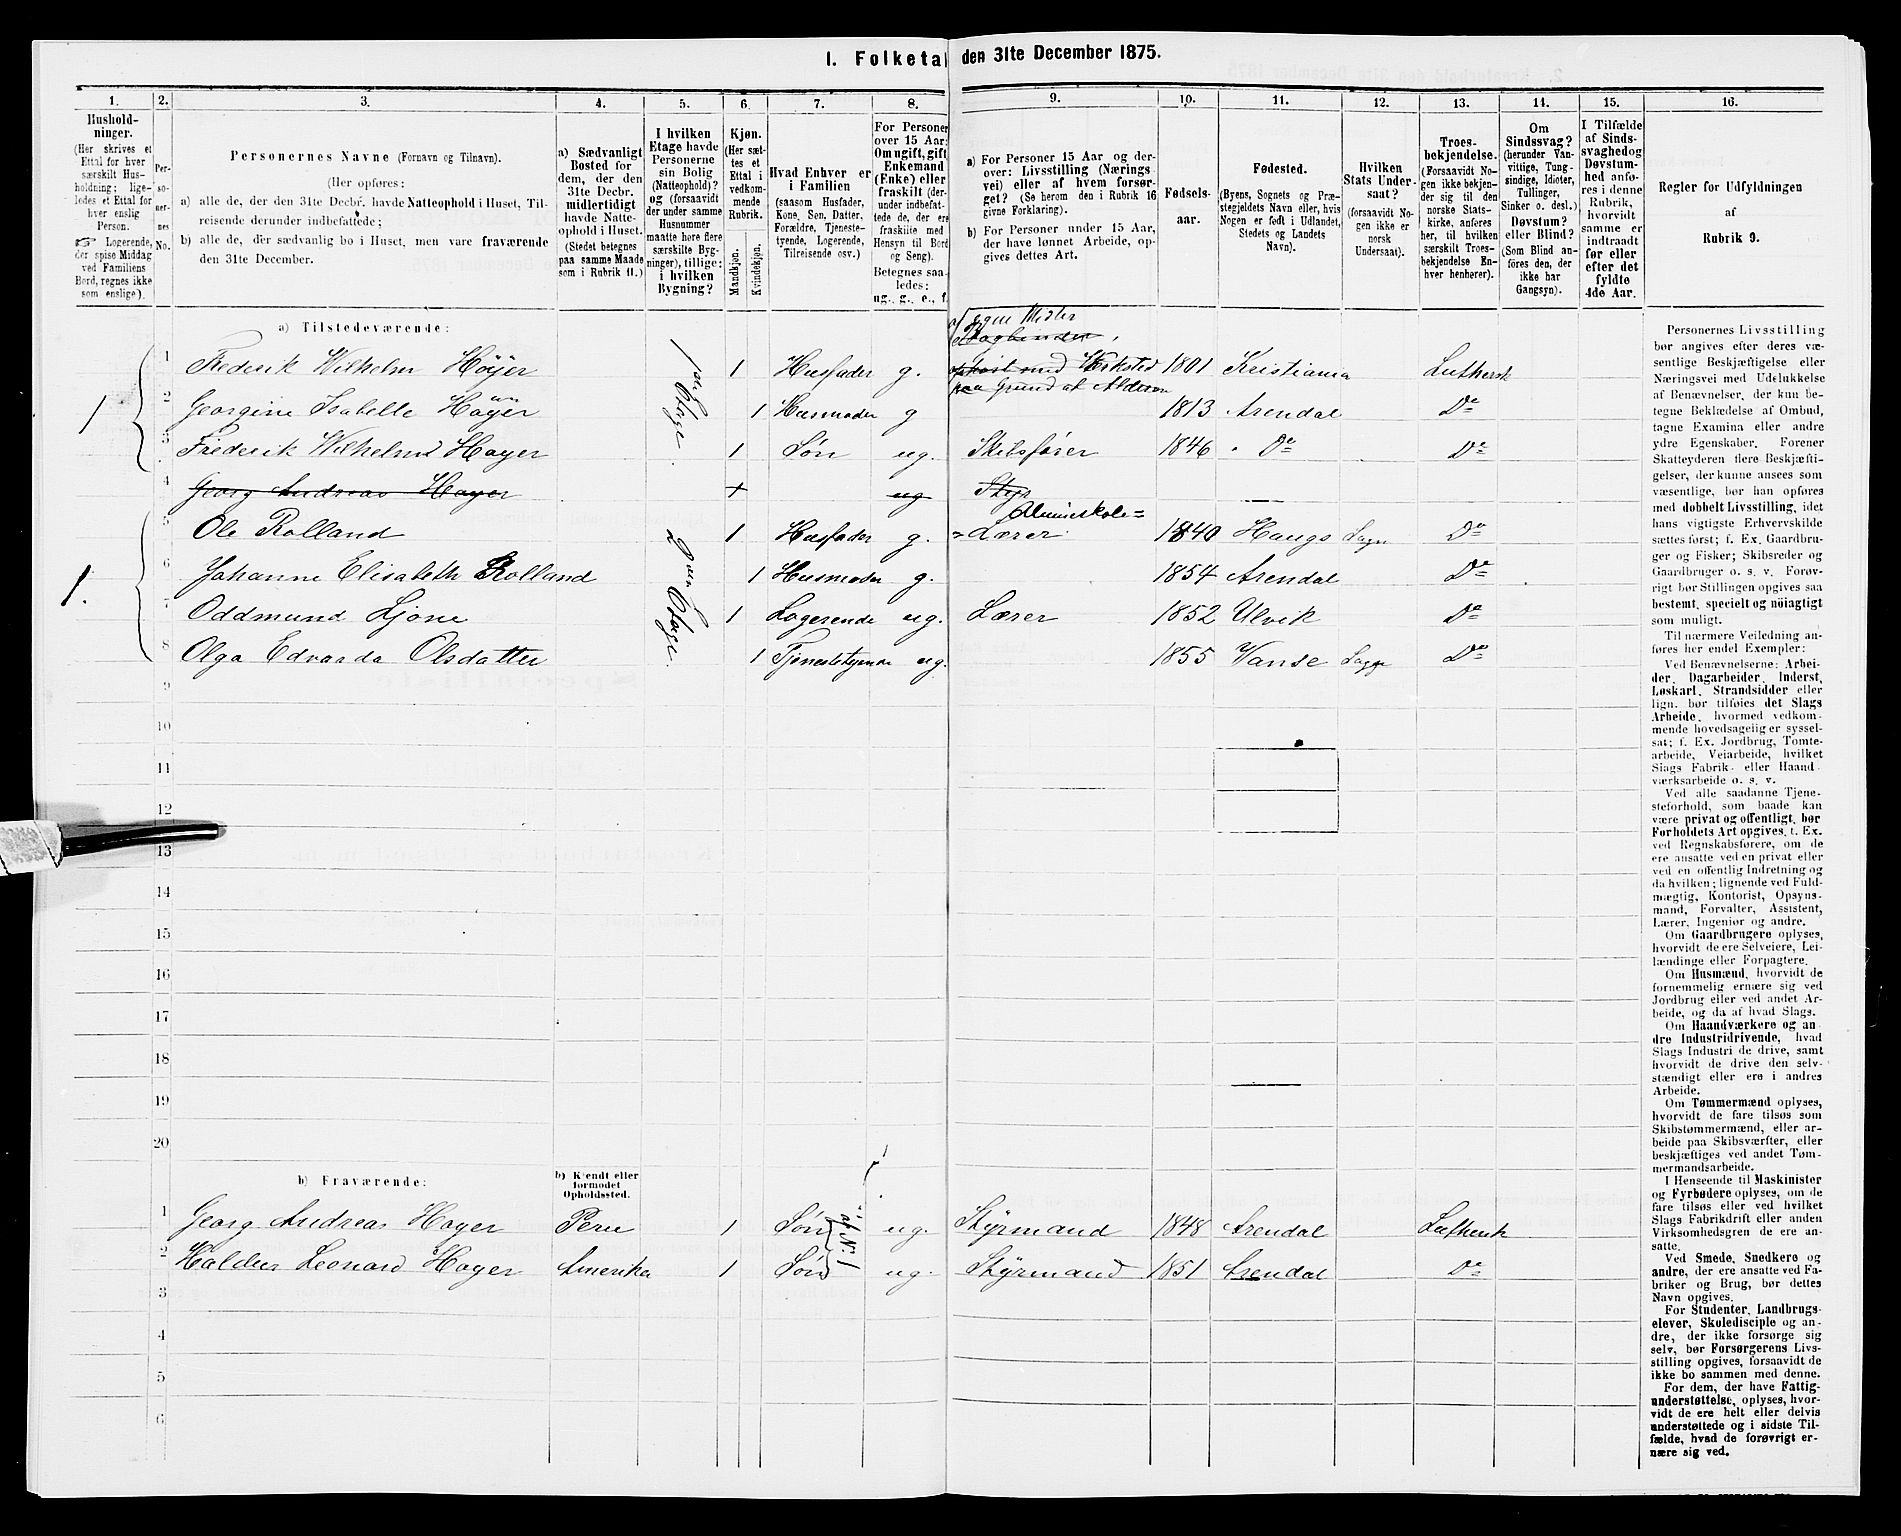 1. Folketal den 31te December 1875.
1. 2. 3. 4. 5. 6. 7. 8. 9. 10. 11. 12. 13. 14. 15. 16.
Hushold-
ninger.
(Her skrives et
Ettal for hver
særskilt Hus-
holdning; lige-
ledes et Ettal for
hver enslig
Person.
☞ Logerende,
der spise Middag
ved Familiens
Bord, regnes ikke
som enslige).
Per-
so-
ner-
nes
No.
Personernes Navne (Fornavn og Tilnavn).
(Her opføres:
a) alle de, der den 31te Decbr. havde Natteophold i Huset, Til-
reisende derunder indbefattede;
b) alle de, der sædvanlig bo i Huset, men vare fraværende
den 31te December.
a) Sædvanligt
Bosted for
dem, der den
31te Decbr.
midlertidigt
havde Natte-
ophold i Huset.
(Stedet betegnes
paa samme Maade
som i Rubrik 11.)
I hvilken
Etage havde
Personerne
sin Bolig
(Natteophold)?
og (forsaavidt
der under samme
Husnummer
maatte høre flere
særskilte Byg-
ninger), tillige:
i hvilken
Bygning?
Kjøn.
(Her sæt-
tes et
Ettal i
vedkom-
mende
Rubrik.
Mandkjøn.
Kvindekjøn.
Hvad Enhver er
i Familien
(saasom Husfader,
Kone, Søn, Datter,
Forældre, Tjeneste-
tyende, Logerende,
Tilreisende osv.)
For Personer
over 15 Aar:
Om ugift, gift,
Enkemand
(Enke) eller
fraskilt (der-
under indbefat-
tede de, der ere
fraskilte med
Hensyn til Bord
og Seng).
Betegnes saa-
ledes:
ug., g., e., f.
a) For Personer 15 Aar og der-
over: Livsstilling (Nærings-
vei) eller af hvem forsør-
get? (Se herom den i Rubrik 16
givne Forklaring).
b) For Personer under 15 Aar,
der have lønnet Arbeide, op-
gives dettes Art.
Fødsels-
aar.
Fødested.
(Byens, Sognets og Præ-
stegjeldets Navn eller, hvis
Nogen er født i Udlandet,
Stedets og Landets
Navn).
Hvilken
Stats Under-
saat?
(forsaavidt No-
gen ikke er
norsk
Undersaat).
Troes-
bekjendelse.
(Forsaavidt No-
gen ikke bekjen-
der sig til den
norske Stats-
kirke, anføres
her, til hvilken
særskilt Troes-
bekjendelse En-
hver henhører).
Om
Sindssvag?
(herunder Van-
vittige, Tung-
sindige, Idioter,
Tullinger,
Sinker o. desl.)
Døvstum?
eller Blind?
(Som Blind an-
føres den, der
ikke har
Gangsyn).
I Tilfælde
af Sinds-
svaghed og
Døvstum-
hed anfø-
res i denne
Rubrik,
hvorvidt
samme er
indtraadt
før eller
efter det
fyldte
4de Aar.
Regler for Udfyldningen
af
Rubrik 9.
a) Tilstedeværende:
a/ egne Midler
Bogbinder
1 Frederik Wilhelm Höyer 1ste Etage 1 Husfader g. ophørt med Verksted 1801 Kristiania Luthersk
paa Grund af Alderen
1 2 Georgine Isabelle Höyer 1 Husmoder g 1813 Arendal Do
3 Frederik Wilhelm Høyer 1 Søn ug. Skibsfører 1846 Do Do
4 Georg Andreas Høyer + ug Styr
Almueskole=
5 Ole Rolland 2den Etage 1 Husfader g. =Lærer 1840 Haugs Sogn Do
6 Johanne Elisabeth Rolland 1 Husmoder g. 1854 Arendal Do
1. 7 Oddmund Ljone 1 Logerende ug. Lærer 1852 Ulvik Do
8 Olga Edvarda Olsdatter 1 Tjenestetyende ug. 1855 Vanse Sogn Do
9
10
11
12
13
14
15
16
17
18
19
20
b) Fraværende:
b) Kjendt eller
formodet
Opholdssted.
1 Georg Andreas Høyer Peru 1 Søn af No 1 ug. Styrmand 1848 Arendal Luthersk
2 Leonard Høyer Amerika 1 Søn ug. Styrmand 1851 Arendal Do
3
4
5
6
Personernes Livsstilling
bør angives efter deres væ-
sentlige Beskjæftigelse eller
Næringsvei med Udelukkelse
af Benævnelser, der kun be-
tegne Beklædelse af Ombud,
tagne Examina eller andre
ydre Egenskaber. Forener
Skatteyderen flere Beskjæfti-
gelser, der kunne ansees som
væsentlige, bør han opføres
med dobbelt Livsstilling, idet
hans vigtigste Erhvervskilde
sættes først; f. Ex. Gaardbru-
ger og Fisker; Skibsreder og
Gaardbruger o. s. v. Forøv-
rigt bør Stillingen opgives saa
bestemt, specielt og nøiagtigt
som muligt.
Til nærmere Veiledning an-
føres her endel Exempler:
Ved Benævnelserne: Arbei-
der, Dagarbeider, Inderst,
Løskarl, Strandsidder eller
lign. bør tilføies det Slags
Arbeide, hvormed vedkom-
mende hovedsagelig er syssel-
sat; f. Ex. Jordbrug, Tomte-
arbeide, Veiarbeide, hvilket
Slags Fabrik- eller Haand-
værksarbeide o. s. v.
Ved alle saadanne Tjene-
steforhold, som baade kan
være privat og offentligt, bør
Forholdets Art opgives, t. Ex.
ved Regnskabsførere, om de
ere ansatte ved en privat eller
ved en offentlig Indretning og
da hvilken; lignende ved Fuld-
mægtig, Kontorist, Opsyns-
mand, Forvalter, Assistent,
Lærer, Ingeniør og andre.
Om Gaardbrugere oplyses,
hvorvidt de ere Selveiere, Lei-
lændinge eller Forpagtere.
Om Husmænd, hvorvidt de
fornemmelig ernære sig ved
Jordbrug eller ved andet Ar-
beide, og da af hvad Slags.
Om Haandværkere og an-
dre Industridrivende, hvad
Slags Industri de drive, samt
hvorvidt de drive den selv-
stændigt eller ere i andres
Arbeide.
Om Tømmermænd oplyses,
hvorvidt de fare tilsøs som
Skibstømmermænd, eller ar-
beide paa Skibsværfter, eller
beskjæftiges ved andet Tøm-
mermandsarbeide.
I Henseende til Maskinister
og Fyrbødere oplyses, om de
fare tilsøs eller ved hvilket
Slags Fabrikdrift eller anden
Virksomhedsgren de ere an-
satte.
Ved Smede, Snedkere og
andre, der ere ansatte ved Fa-
briker og Brug, bør dettes
Navn opgives.
For Studenter, Landbrugs-
elever, Skoledisciple og an-
dre, der ikke forsørge sig
selv, bør Forsørgerens Livs-
stilling opgives, forsaavidt de
ikke bo sammen med denne.
For dem, der have Fattig-
understøttelse, oplyses, hvor-
vidt de ere helt eller delvis
understøttede og i sidste Til-
fælde, hvad de forøvrigt er-
nære sig ved.